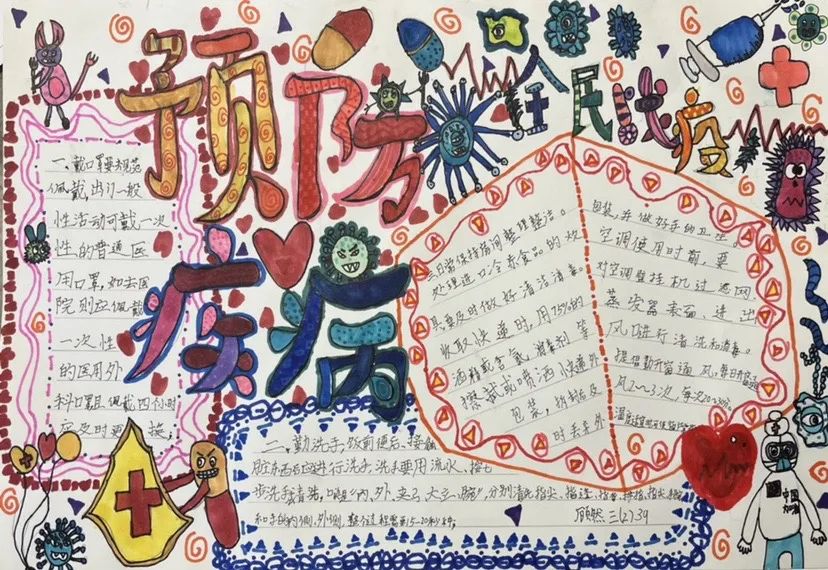 预防
疾病
全民战疫
一、戴口罩要规范
佩戴，出门一般
性活动可戴一次
性的普通医
用口罩，如去医
院则应佩戴
一次性
的医用外
科口罩且佩戴四小时
应及时更换。
二、勤洗手，饭前便后、接触
脏东西后应进行洗手，洗手要用流水、按七
步洗手法清洗，分别清洗指尖、指缝、
和手的内侧、外侧，整个过程需要15-20秒钟。
三、日常保持房间整理整洁。
处理进口冷冻食品的炊
具要及时做好清洁消毒。
收取快递时，用75%的
酒精或含氯消毒剂等
擦拭或喷洒快递外
包装，拆封后及
时丢弃外
包装，并做好手的卫生。
空调使用时前，要
对空调壁挂机过滤网、
蒸发器表面、进出
风口进行清洗和消毒。
提倡勤开窗通风，每日开窗通
风2~3次，每次20-30分。
三(2)39
中国
加油